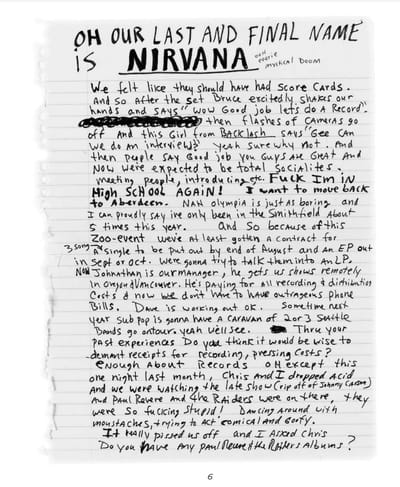 OH OUR LAST AND FINAL NAME
is NIRVANA ooh eerie
mystical Doom
We felt like they should have had score cards.
And so after the set Bruce excitedly shakes our
hands and says "wow Good job lets do A Record"
then flashes of cameras go
off And this Girl from BackLash says "Gee can
we do an interview"? yeah sure why not. And
then people say Good job you guys are Great And
Now were expected to be total socialites.
meeting people, introducing etc. Fuck I'm in
High SCHOOL AGAIN! I want to move back
to Aberdeen. NAH olympia is just as boring and
I can proudly say ive only been in the Smithfield About
5 times this year. And so because of this
Zoo-event weve at least gotten a contract for
3 song A single to be put out by end of August and an EP out
in Sept or Oct. Were gonna try to talk them into An LP.
Now Johnathan is our manager, he gets us shows remotely
in oregon & Vancouver. He's paying for all recording & distribution
Costs & now we dont have to have outrageous phone
Bills. Dave is working out OK. Sometime next
year Sub pop is gonna have a CARAVAN of 2 or 3 Seattle
Bands go on tour. yeah well see. Thru your
Past experiences Do you think it would be wise to
demand receipts for recording, pressing costs?
enough About Records OH except this
one night last month, Chris and I dropped acid
And we were watching the late show (rip off of Johnny Carson)
And Paul Revere and the Raiders were on there, they
were so fucking stupid! Dancing around with
moustaches, trying to act comical and Goofy.
It really pissed us off and I Asked Chris
Do you have Any Paul Revere & the Raiders Albums?
6